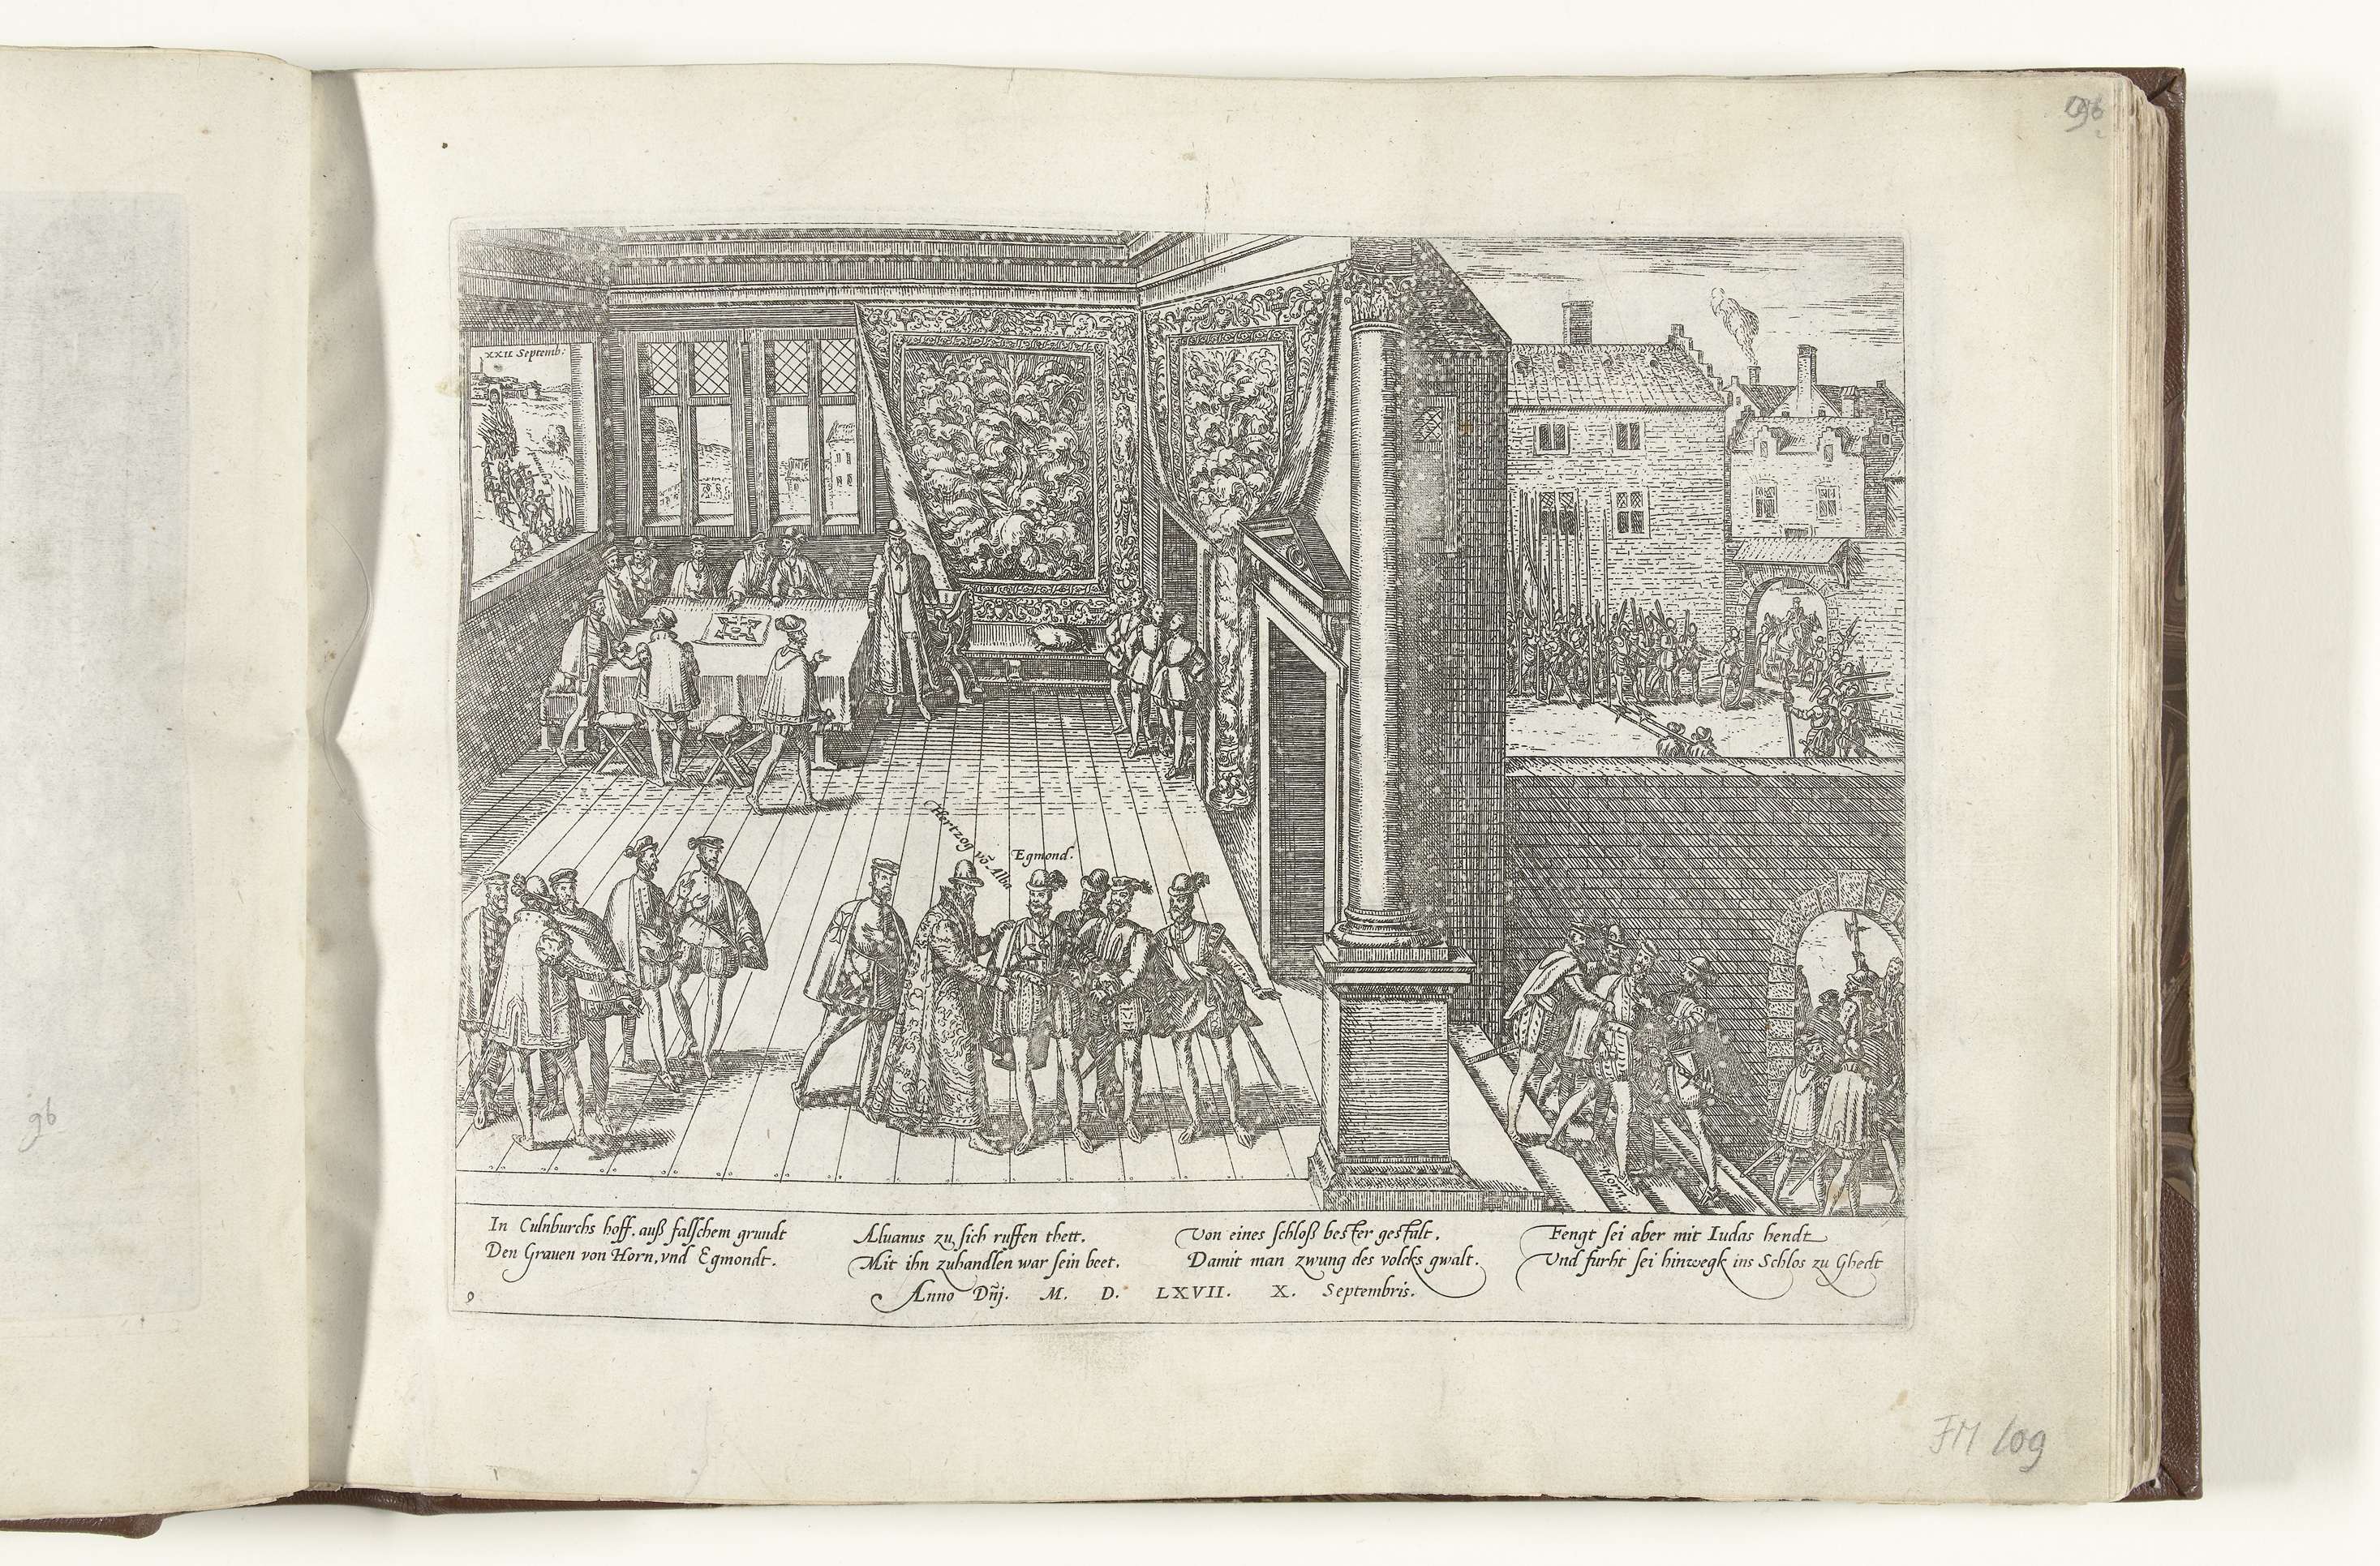 96
XXII Septemb:
Hertzog võ Alba
Egmond.
Horn
In Culnburchs hoff, auß falschem grundt
Den Grauen von Horn, vnd Egmondt.
Aluanus zu sich ruffen thett.
Mit ihn zuhandlen war sein beet.
Von eines schloß bester gestalt,
Damit man zwung des volcks gwalt.
Fengt sei aber mit Iudas hendt
Vnd furht sei hinwegk ins Schlos zu Ghedt
Anno Dñj. M. D. LXVII. X. Septembris.
9
FM 109